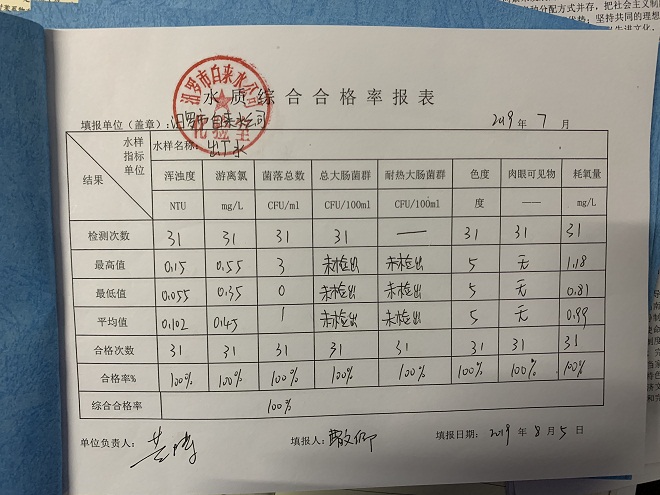 汨罗市自来水公司
化验室
水质综合合格率报表
填报单位（盖章）：汨罗市自来水公司 2019年7月
水样 水样名称：出厂水
指标
单位
结果
浑浊度 游离氯 菌落总数 总大肠菌群 耐热大肠菌群 色度 肉眼可见物 耗氧量
NTU mg/L CFU/ml CFU/100ml CFU/100ml 度 —— mg/L
检测次数 31 31 31 31 — 31 31 31
最高值 0.15 0.55 3 未检出 未检出 5 无 1.18
最低值 0.055 0.35 0 未检出 未检出 5 无 0.81
平均值 0.102 0.45 1 未检出 未检出 5 无 0.99
合格次数 31 31 31 31 31 31 31 31
合格率% 100% 100% 100% 100% 100% 100% 100% 100%
综合合格率 100%
单位负责人： 填报人： 填报日期：2019年8月5日